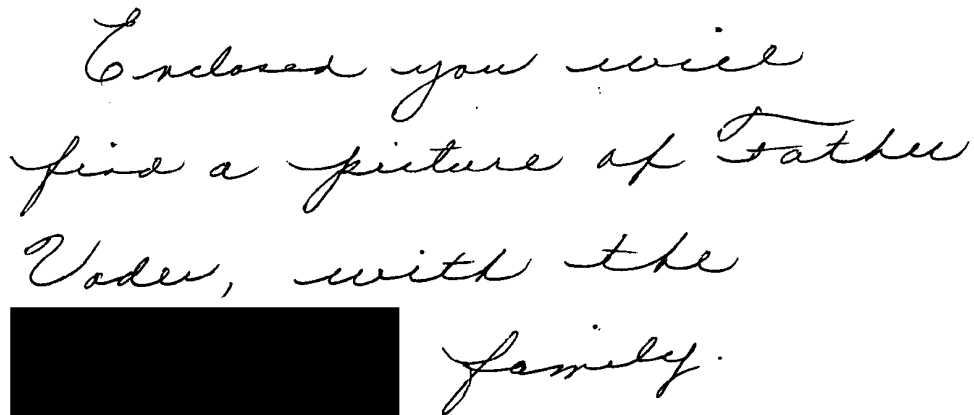 Enclosed you will
find a picture of Father
Voder, with the
family.